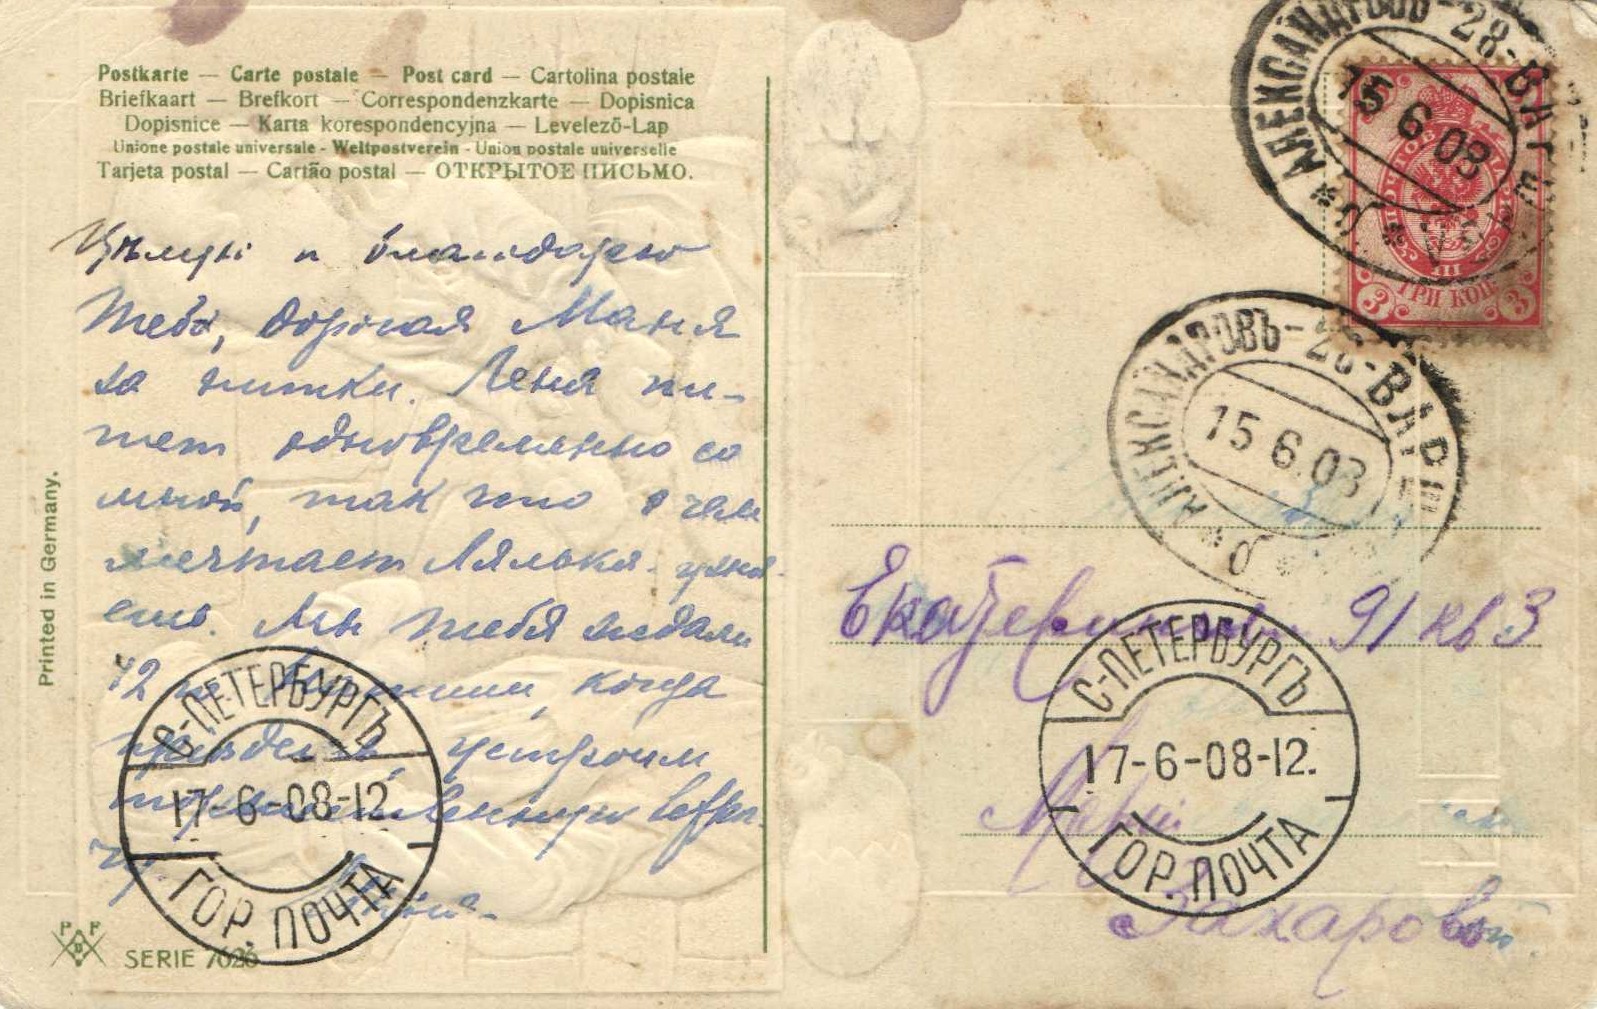 Postkarte — Carte postale — Post card — Cartolina postale
Briefkaart — Brefkort — Correspondenzkarte — Dopisnica
Dopisnice — Karta korespondencyjna — Levelező-Lap
Unione postale universale - Weltpostverein - Union postale universelle
Tarjeta postal — Cartão postal — ОТКРЫТОЕ ПИСЬМО.
и благодарю
тебя, дорогая Маня
за нитки. Леня пи-
шет одновременно со
мной, так что о чем
мечтает Лялька
ешь. Мы тебя ждали
12 когда
устроим
Printed in Germany.
PPD
SERIE 7626
С-ПЕТЕРБУРГЪ
17-6-08-12
ГОР. ПОЧТА
АЛЕКСАНДРОВЪ-28-ВАРШ
15 6 08
ТРИ КОП.
3 3
АЛЕКСАНДРОВЪ-28-ВАРШ
15 6.08
91 кв 3
С-ПЕТЕРБУРГЪ
17-6-08-12.
ГОР. ПОЧТА
Марiи
Захаровой